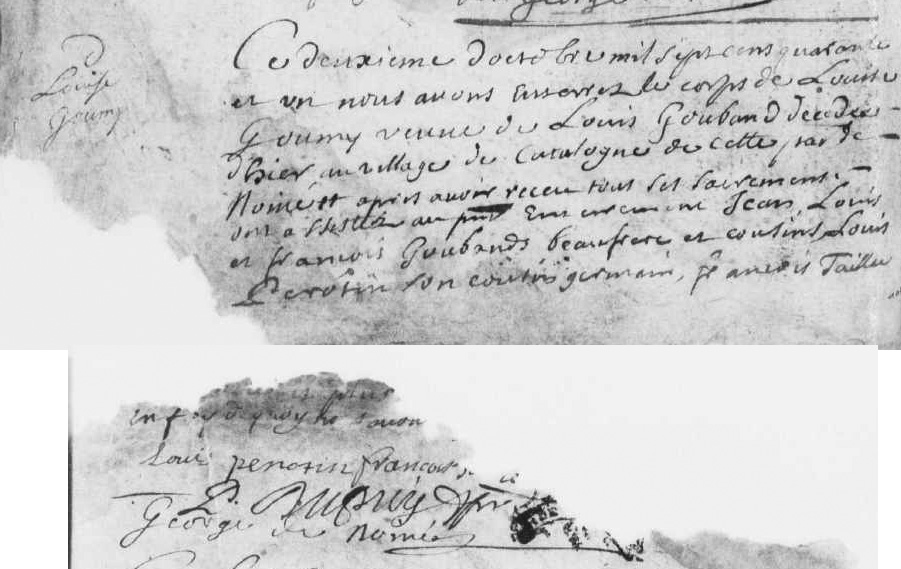 George
Louise
Goumy
Ce deuxieme doctobre mil sept cens quarante
et un nous avons enterrez le corps de Louise
Goumy veuve de Louis Goubaud decedée
dhier au village de Catalogne de cette par de
Nomé et apres avoir receu tous ses sacrement
ont assisté au pnt Enterrement Jean, Louis
et francois Goubauds beaufrere et cousins Louis
Perotin son cousin germain, francois Taillee
plus
en foy d quoy ne savon
Loui penotin francois
P. Dupuy
George de Nomé